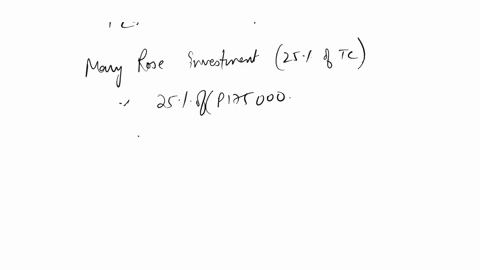 Mary Rose Investment (25% of TC)
25% of (P175000.